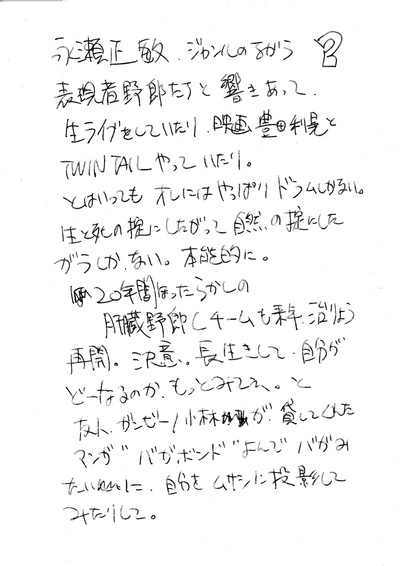 永瀬正敏、ジャンルのちがう
表現者野郎たちと響きあって、
生ライブをしていたり、映画 豊田利晃と
TWIN TAILやっていたり。
とはいっても オレにはやっぱりドラムしかない。
生と死の掟にしたがって自然の掟にした
がうしかない。本能的に。
20年間ほったらかしの
肝臓野郎Cチームも来年、治りょう
再開。決意。長生きして、自分が
どーなるのか、もっとみてえ。と
友人、ガンゼー!小林が、貸してくれた
マンガ"バガボンド"よんで バガみ
たいに、自分を ムサシに投影して
みたりして。